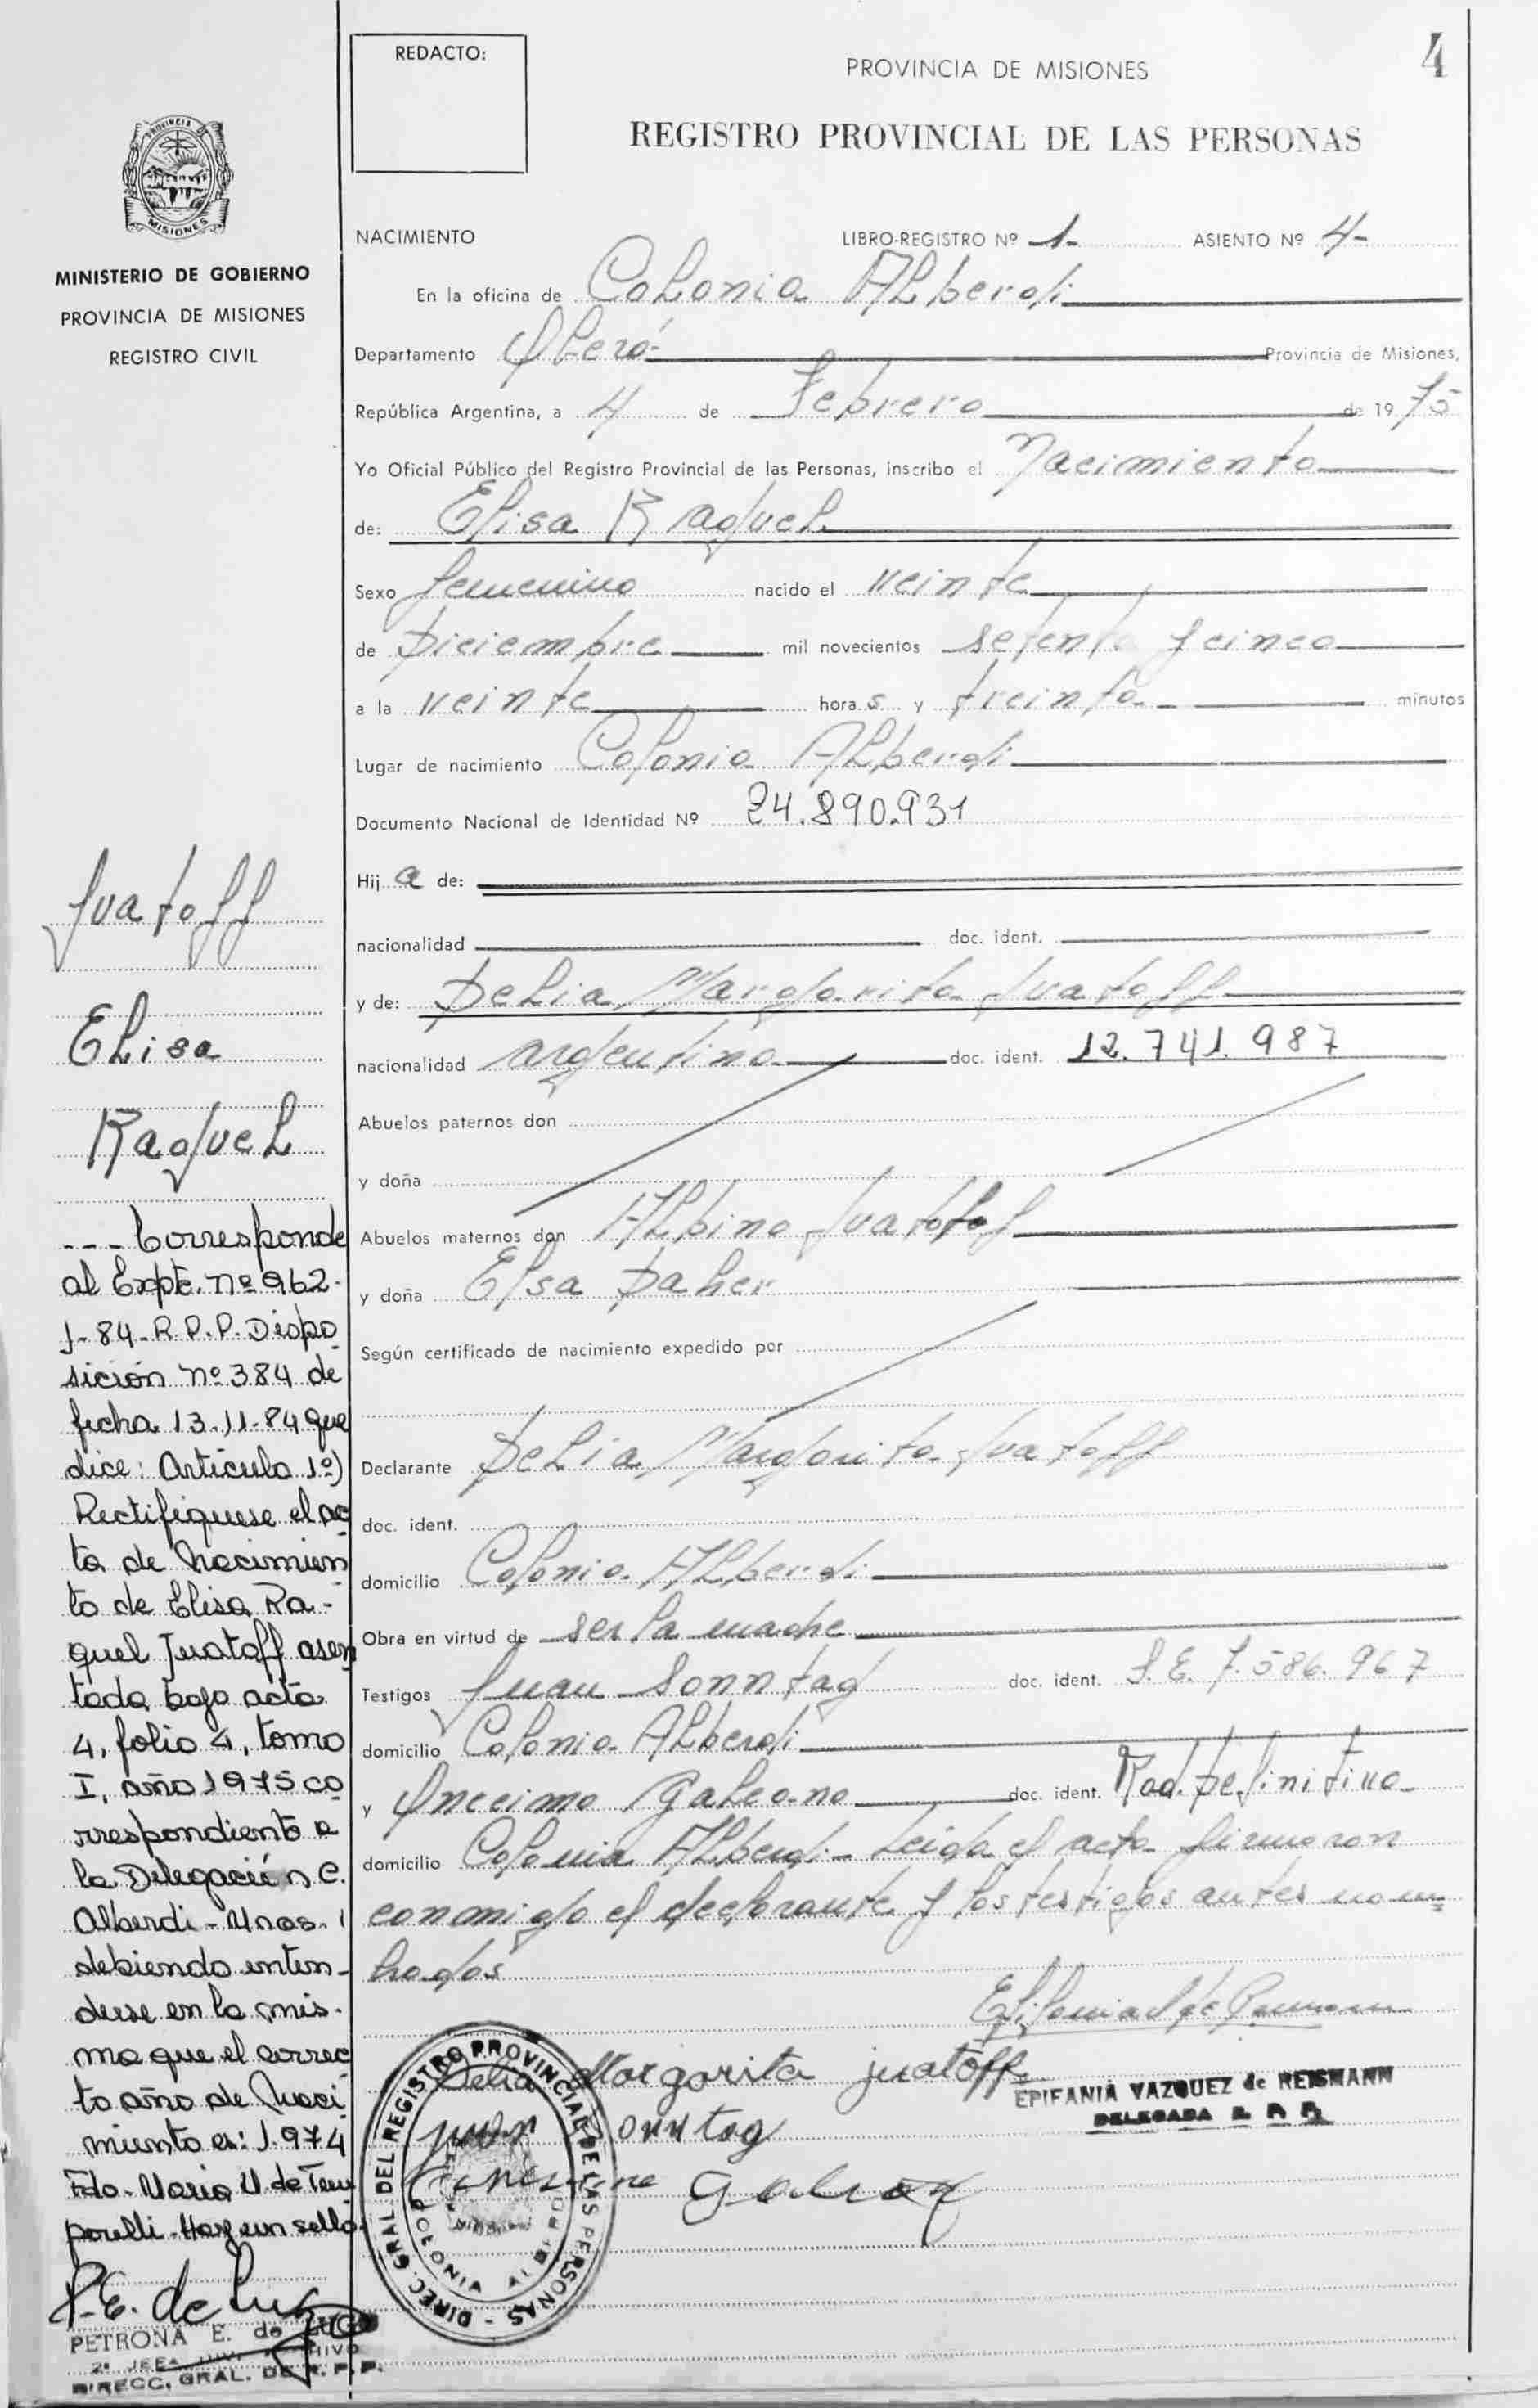 REDACTO:
PROVINCIA DE MISIONES
4
REGISTRO PROVINCIAL DE LAS PERSONAS
PROVINCIA DE
MISIONES
MINISTERIO DE GOBIERNO
PROVINCIA DE MISIONES
REGISTRO CIVIL
NACIMIENTO LIBRO-REGISTRO Nº 1- ASIENTO Nº 4-
En la oficina de Colonia Alberdi
Departamento Oberá- Provincia de Misiones,
República Argentina, a 4 de Febrero de 1975
Yo Oficial Público del Registro Provincial de las Personas, inscribo el Nacimiento
de: Elisa Raquel
Sexo femenino nacido el veinte
de Diciembre mil novecientos setenta y cinco
a la veinte horas y treinta minutos
Lugar de nacimiento Colonia Alberdi
Documento Nacional de Identidad Nº 24.890.931
Hija de:
nacionalidad doc. ident.
y de: Delia Margarita Juatoff
nacionalidad argentina doc. ident. 12.741.987
Abuelos paternos don
y doña
Abuelos maternos don Albino Juatoff
y doña Elsa Daher
Según certificado de nacimiento expedido por
Declarante Delia Margarita Juatoff
doc. ident.
domicilio Colonia Alberdi
Obra en virtud de ser la madre
Testigos Juan Sonntag doc. ident. L.E. 7.586.967
domicilio Colonia Alberdi
y Onecimo Galeano doc. ident. Rad. Definitiva
domicilio Colonia Alberdi- Leida el acta firmaron
conmigo el declarante y los testigos antes nom
brados
Delia Margarita juatoff
EPIFANIA VAZQUEZ de REISMANN
DELEGADA R. P. P.
juan sonntag
DIREC. GRAL. DEL REGISTRO PROVINCIAL DE LAS PERSONAS
COLONIA ALBERDI
Juatoff
Elisa
Raquel
--- Corresponde
al Expte. nº 962-
J-84-R.P.P. Dispo
sición nº 384 de
fecha 13-11-84 que
dice: Artículo 1º)
Rectifiquese el ac
ta de Nacimien
to de Elisa Ra-
quel Juatoff asen
tada bajo acta
4, folio 4, tomo
I, año 1975 co
rrespondiente a
la Delegación C.
Alberdi - Mnes.
debiendo enten-
derse en la mis-
ma que el correc
to año de Naci
miento es: 1.974
Fdo- Maria U. de Tem
porelli- Hay un sello.
P.E. de Lugo
PETRONA E. de LUGO
DIRECC. GRAL. DE R. P. P.